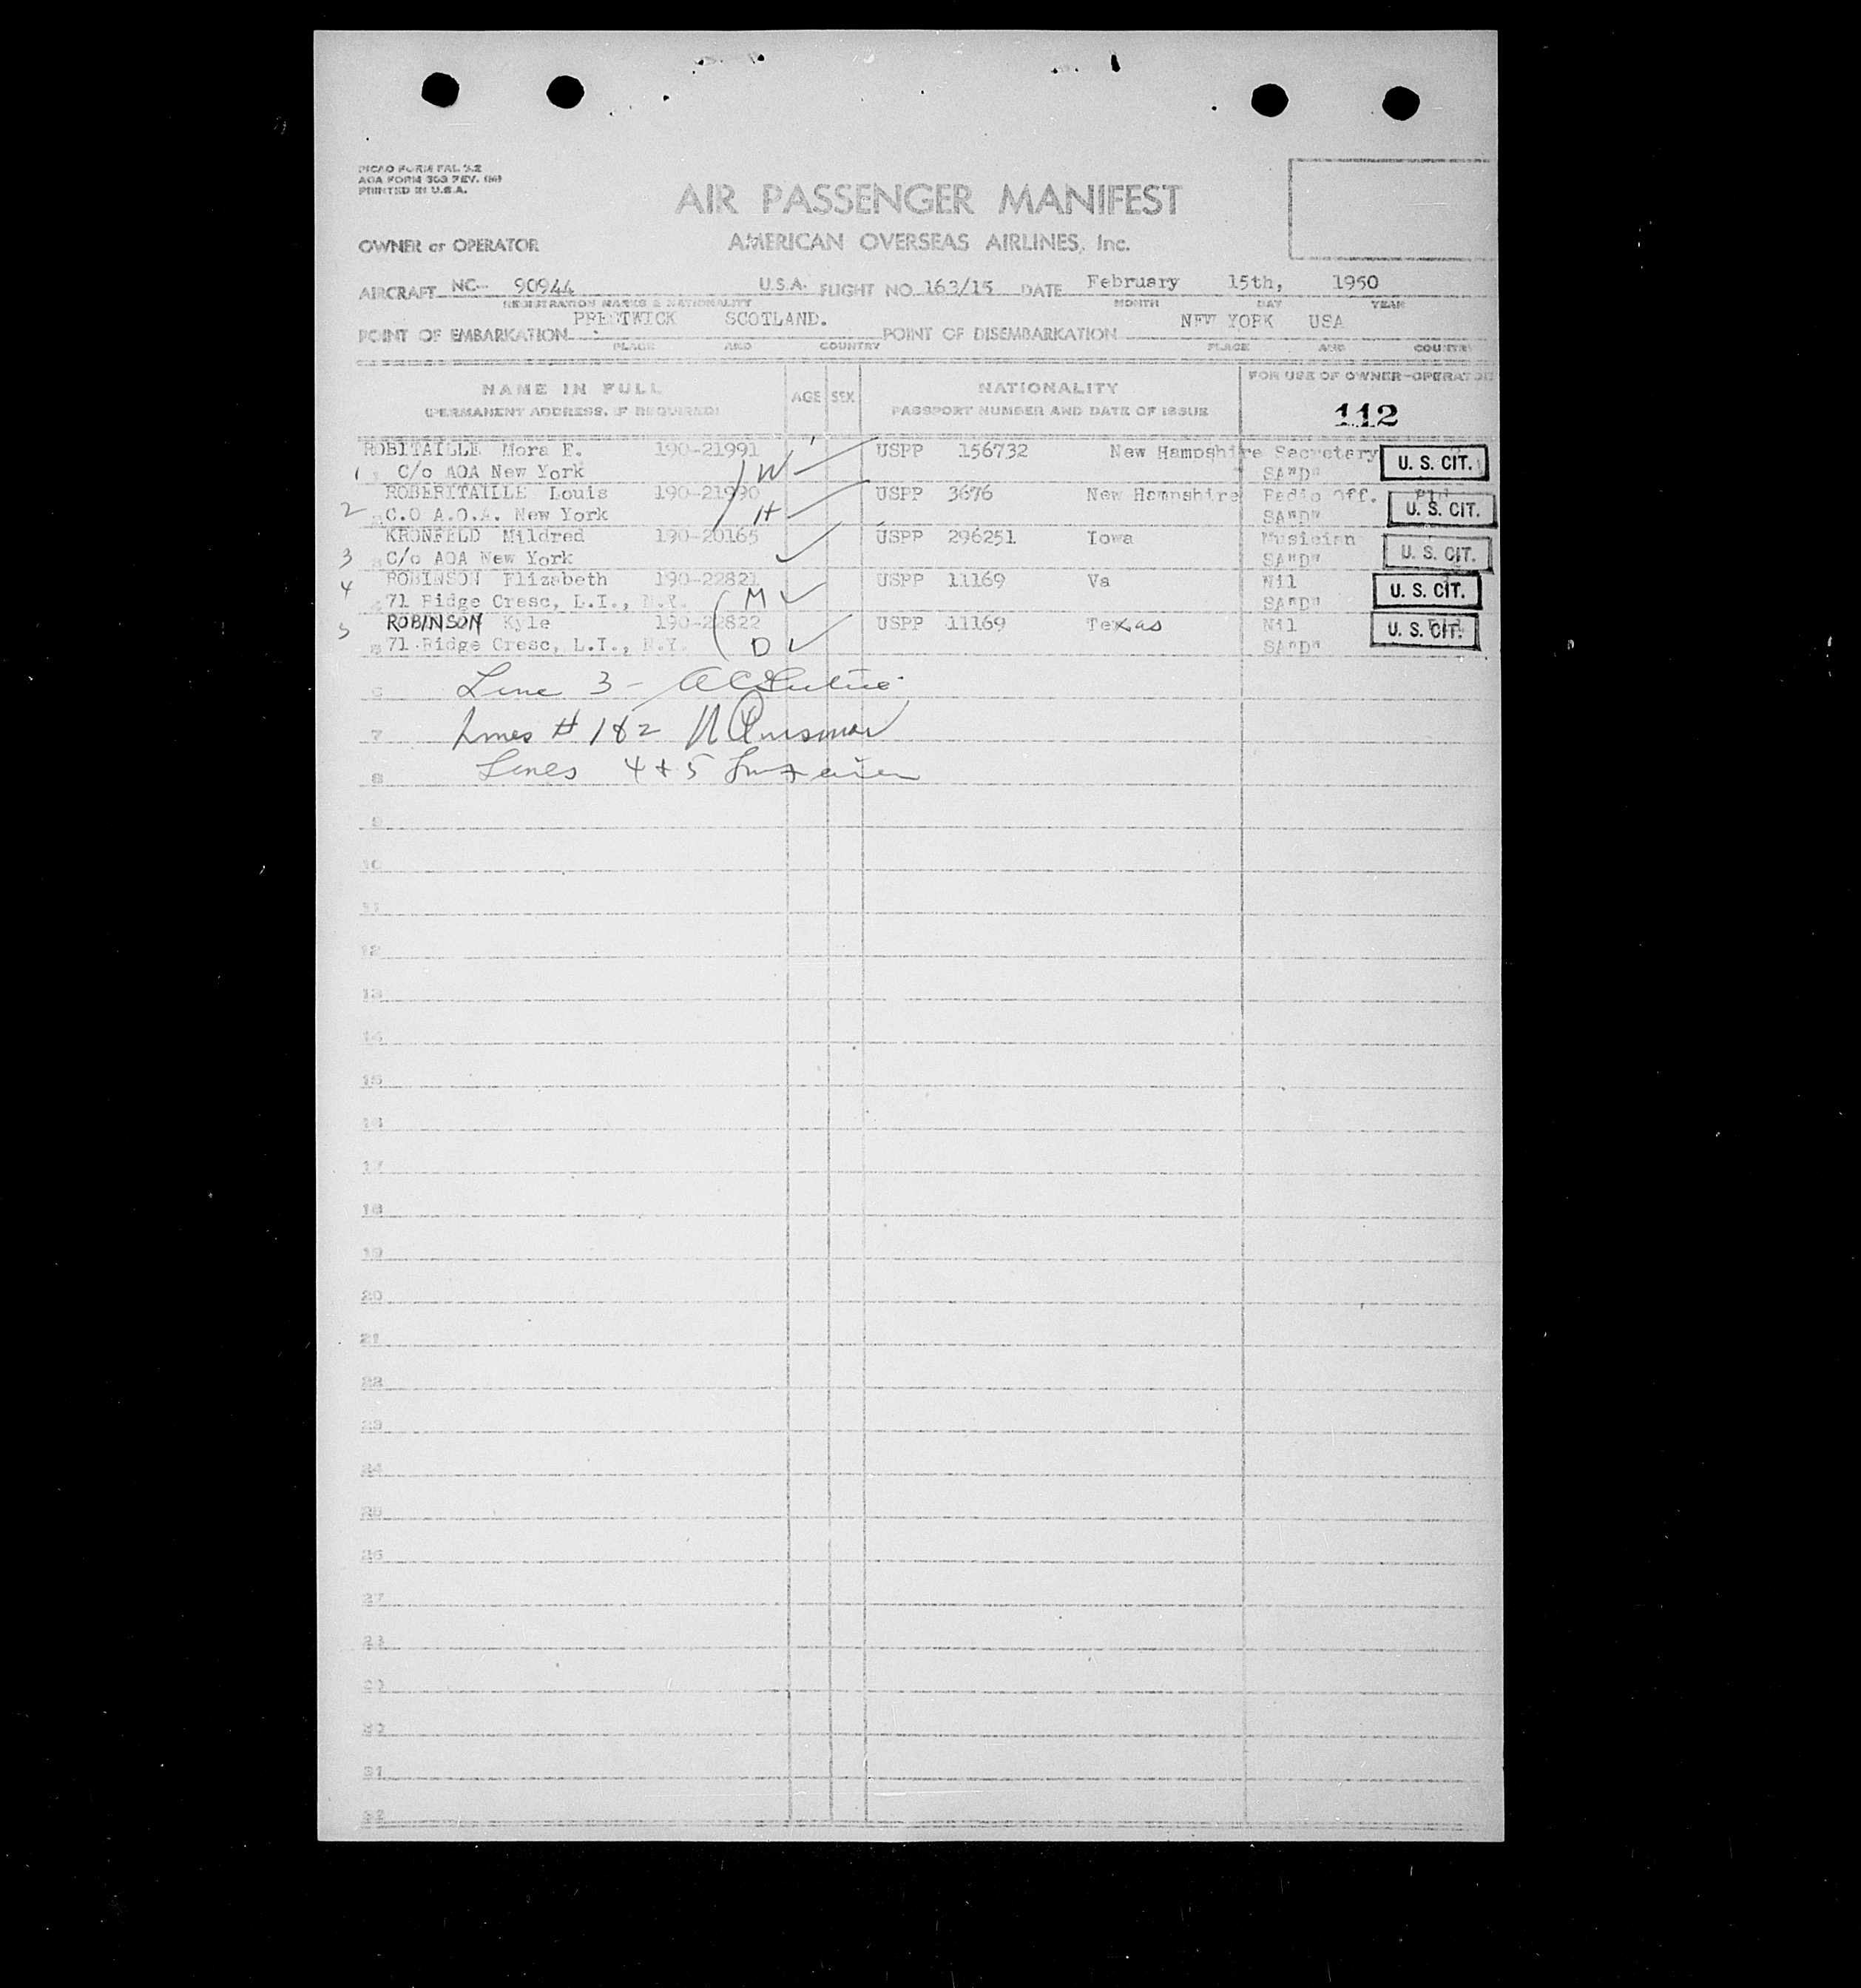 PICAO FORM FAL 3.2
AOA FORM 303 REV.
PRINTED IN U.S.A.
AIR PASSENGER MANIFEST
OWNER or OPERATOR AMERICAN OVERSEAS AIRLINES, Inc.
AIRCRAFT NC- 90944 U.S.A. FLIGHT NO. 163/15 DATE February 15th, 1950
REGISTRATION MARKS & NATIONALITY MONTH DAY YEAR
PRESTWICK SCOTLAND. NEW YORK USA
POINT OF EMBARKATION POINT OF DISEMBARKATION
PLACE AND COUNTRY PLACE AND COUNTRY
NAME IN FULL AGE SEX NATIONALITY FOR USE OF OWNER-OPERATOR
(PERMANENT ADDRESS, IF REQUIRED) PASSPORT NUMBER AND DATE OF ISSUE 112
ROBITAILLE Mora E. 190-21991 USPP 156732 New Hampshire Secretary U. S. CIT.
1 C/o AOA New York W SA"D"
ROBERITAILLE Louis 190-21990 USPP 3676 New Hampshire Radio Off. U. S. CIT.
2 C.O A.O.A. New York H SA"D"
KRONFELD Mildred 190-20165 USPP 296251 Iowa Musician U. S. CIT.
3 C/o AOA New York SA"D"
ROBINSON Elizabeth 190-22821 USPP 11169 Va Nil U. S. CIT.
4 71 Ridge Cresc, L.I., N.Y. M SA"D"
ROBINSON Kyle 190-22822 USPP 11169 Texas Nil U. S. CIT.
5 71 Ridge Cresc, L.I., N.Y. D SA"D"
6 Line 3 -
7 Lines # 1&2
8 Lines 4+5
9
10
11
12
13
14
15
16
17
18
19
20
21
22
23
24
25
26
27
28
29
30
31
32